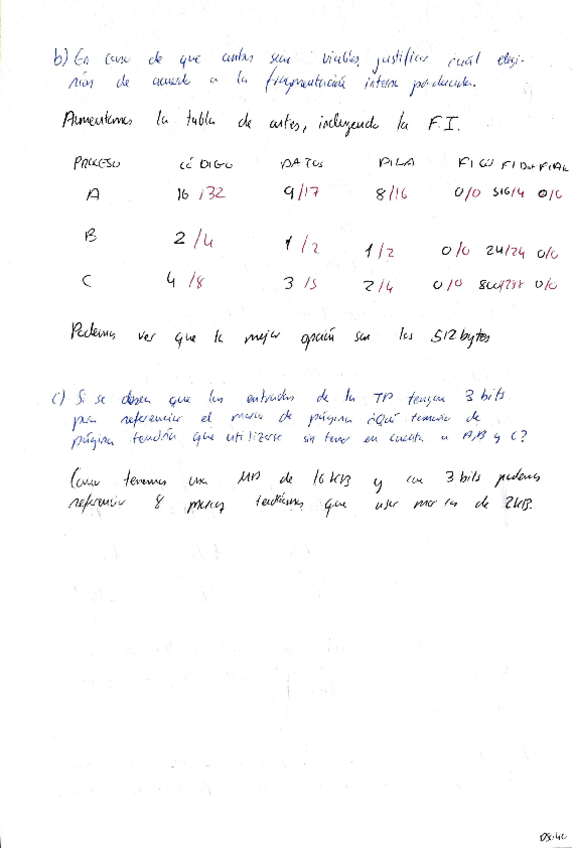 b) En caso de que ambas sean viables, justificar cuál elegi-
rías de acuerdo a la fragmentación interna producida.
Aumentamos la tabla de antes, incluyendo la F.I.
PROCESO CÓDIGO DATOS PILA FI CÓD FI Dat FI PIL
A 16/32 9/17 8/16 0/0 516/4 0/0
B 2/4 1/2 1/2 0/0 24/24 0/0
C 4/8 3/5 2/4 0/0 0/0
Podemos ver que la mejor opción son los 512 bytes
c) Si se desea que las entradas de la TP tengan 3 bits
para referenciar el marco de página ¿Qué tamaño de
página tendría que utilizarse sin tener en cuenta a A, B y C?
Como tenemos una MP de 16 KB y con 3 bits podemos
referenciar 8 marcos tendríamos que usar marcos de 2KB.